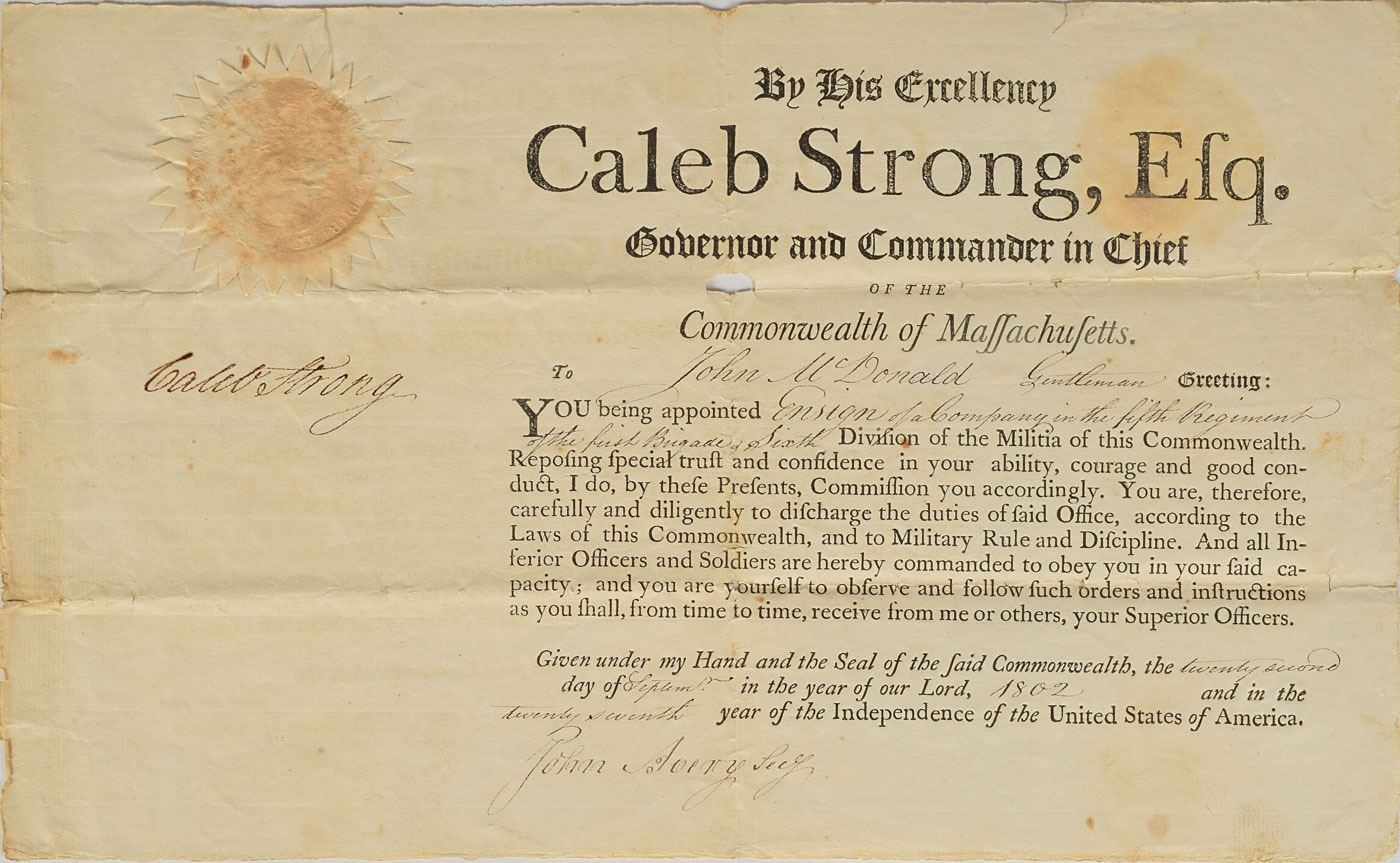 By His Excellency
Caleb Strong, Eſq.
Governor and Commander in Chief
OF THE
Commonwealth of Maſſachuſetts.
Caleb Strong
To John McDonald Gentleman Greeting:
YOU being appointed Ensign of a Company in the fifth Regiment
of the first Brigade & Sixth Diviſion of the Militia of this Commonwealth.
Repoſing ſpecial truſt and confidence in your ability, courage and good con-
duct, I do, by theſe Preſents, Commiſſion you accordingly. You are, therefore,
carefully and diligently to diſcharge the duties of ſaid Office, according to the
Laws of this Commonwealth, and to Military Rule and Diſcipline. And all In-
ferior Officers and Soldiers are hereby commanded to obey you in your ſaid ca-
pacity; and you are yourſelf to obſerve and follow ſuch orders and inſtructions
as you ſhall, from time to time, receive from me or others, your Superior Officers.
Given under my Hand and the Seal of the ſaid Commonwealth, the twenty second
day of Septemr. in the year of our Lord, 1802 and in the
twenty seventh year of the Independence of the United States of America.
John Avery Secy